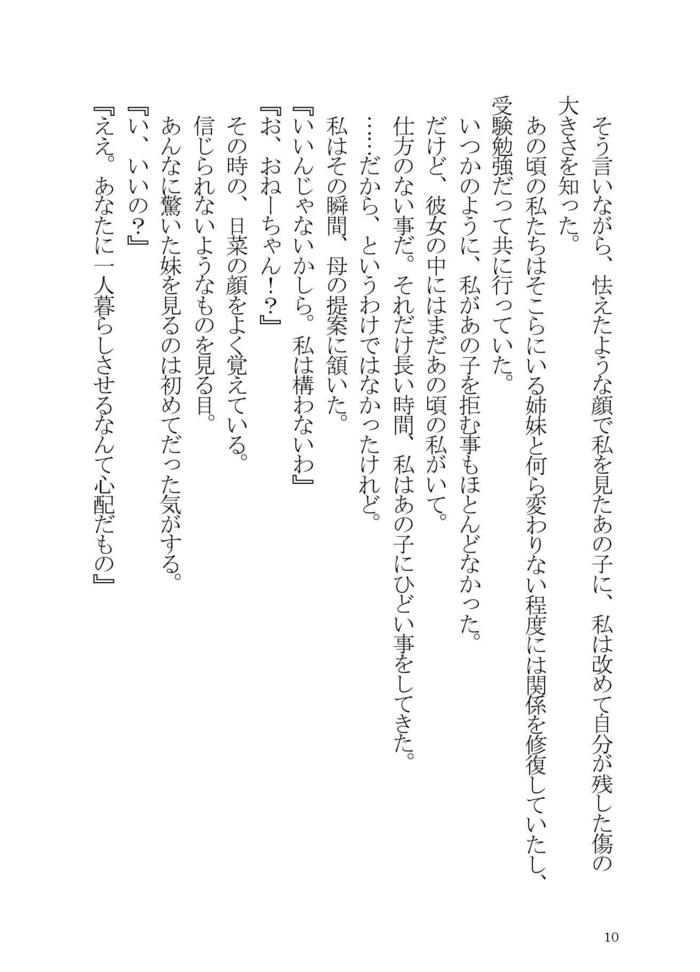 そう言いながら、怯えたような顔で私を見たあの子に、私は改めて自分が残した傷の
大きさを知った。
あの頃の私たちはそこらにいる姉妹と何ら変わりない程度には関係を修復していたし、
受験勉強だって共に行っていた。
いつかのように、私があの子を拒む事もほとんどなかった。
だけど、彼女の中にはまだあの頃の私がいて。
仕方のない事だ。それだけ長い時間、私はあの子にひどい事をしてきた。
……だから、というわけではなかったけれど。
私はその瞬間、母の提案に頷いた。
『いいんじゃないかしら。私は構わないわ』
『お、おねーちゃん！？』
その時の、日菜の顔をよく覚えている。
信じられないようなものを見る目。
あんなに驚いた妹を見るのは初めてだった気がする。
『い、いいの？』
『ええ。あなたに一人暮らしさせるなんて心配だもの』
10